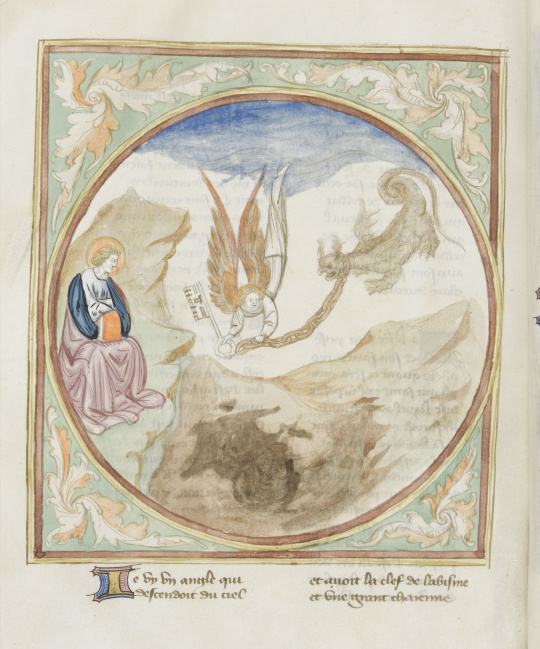 Je vy vn angle qui
descendoit du ciel
et auoit la clef de labisme
et vne grant chaienne